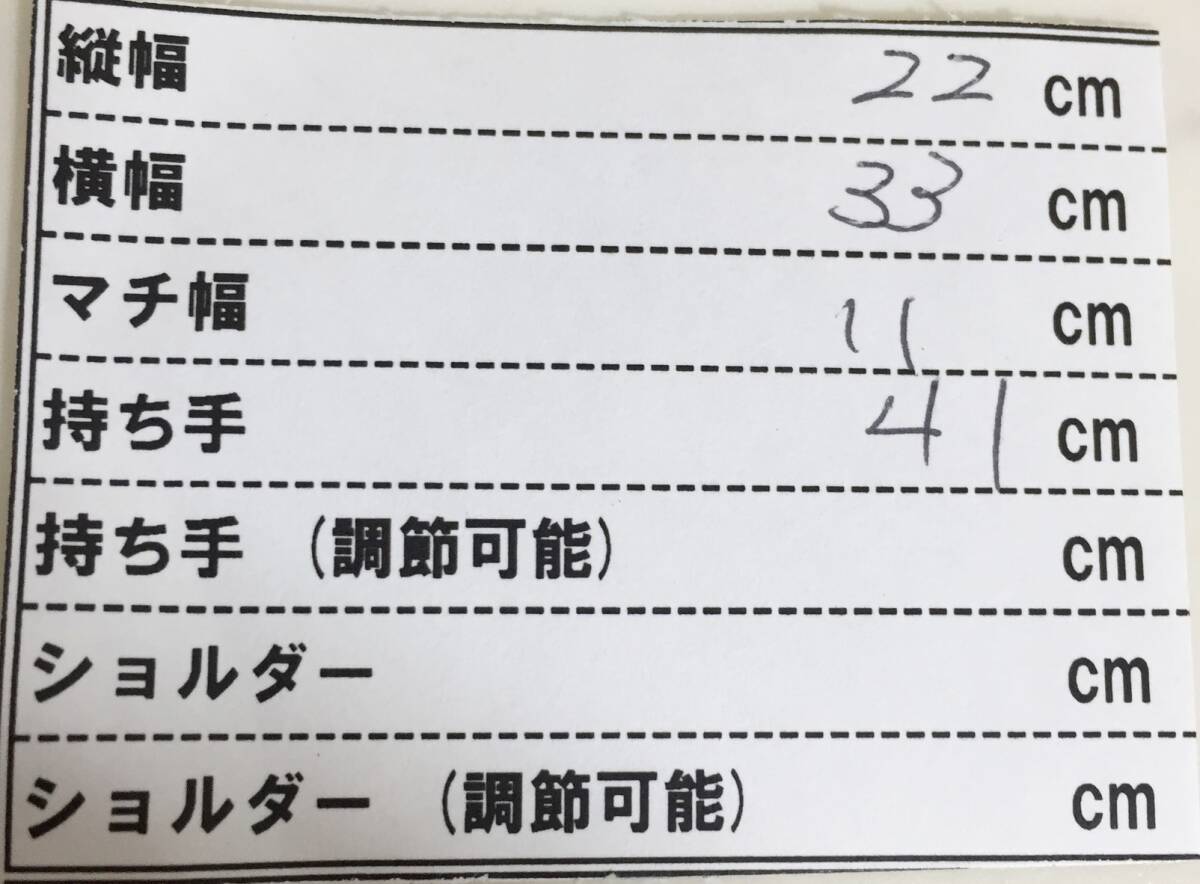 縦幅 22 cm
横幅 33 cm
マチ幅 11 cm
持ち手 41 cm
持ち手 (調節可能) cm
ショルダー cm
ショルダー (調節可能) cm